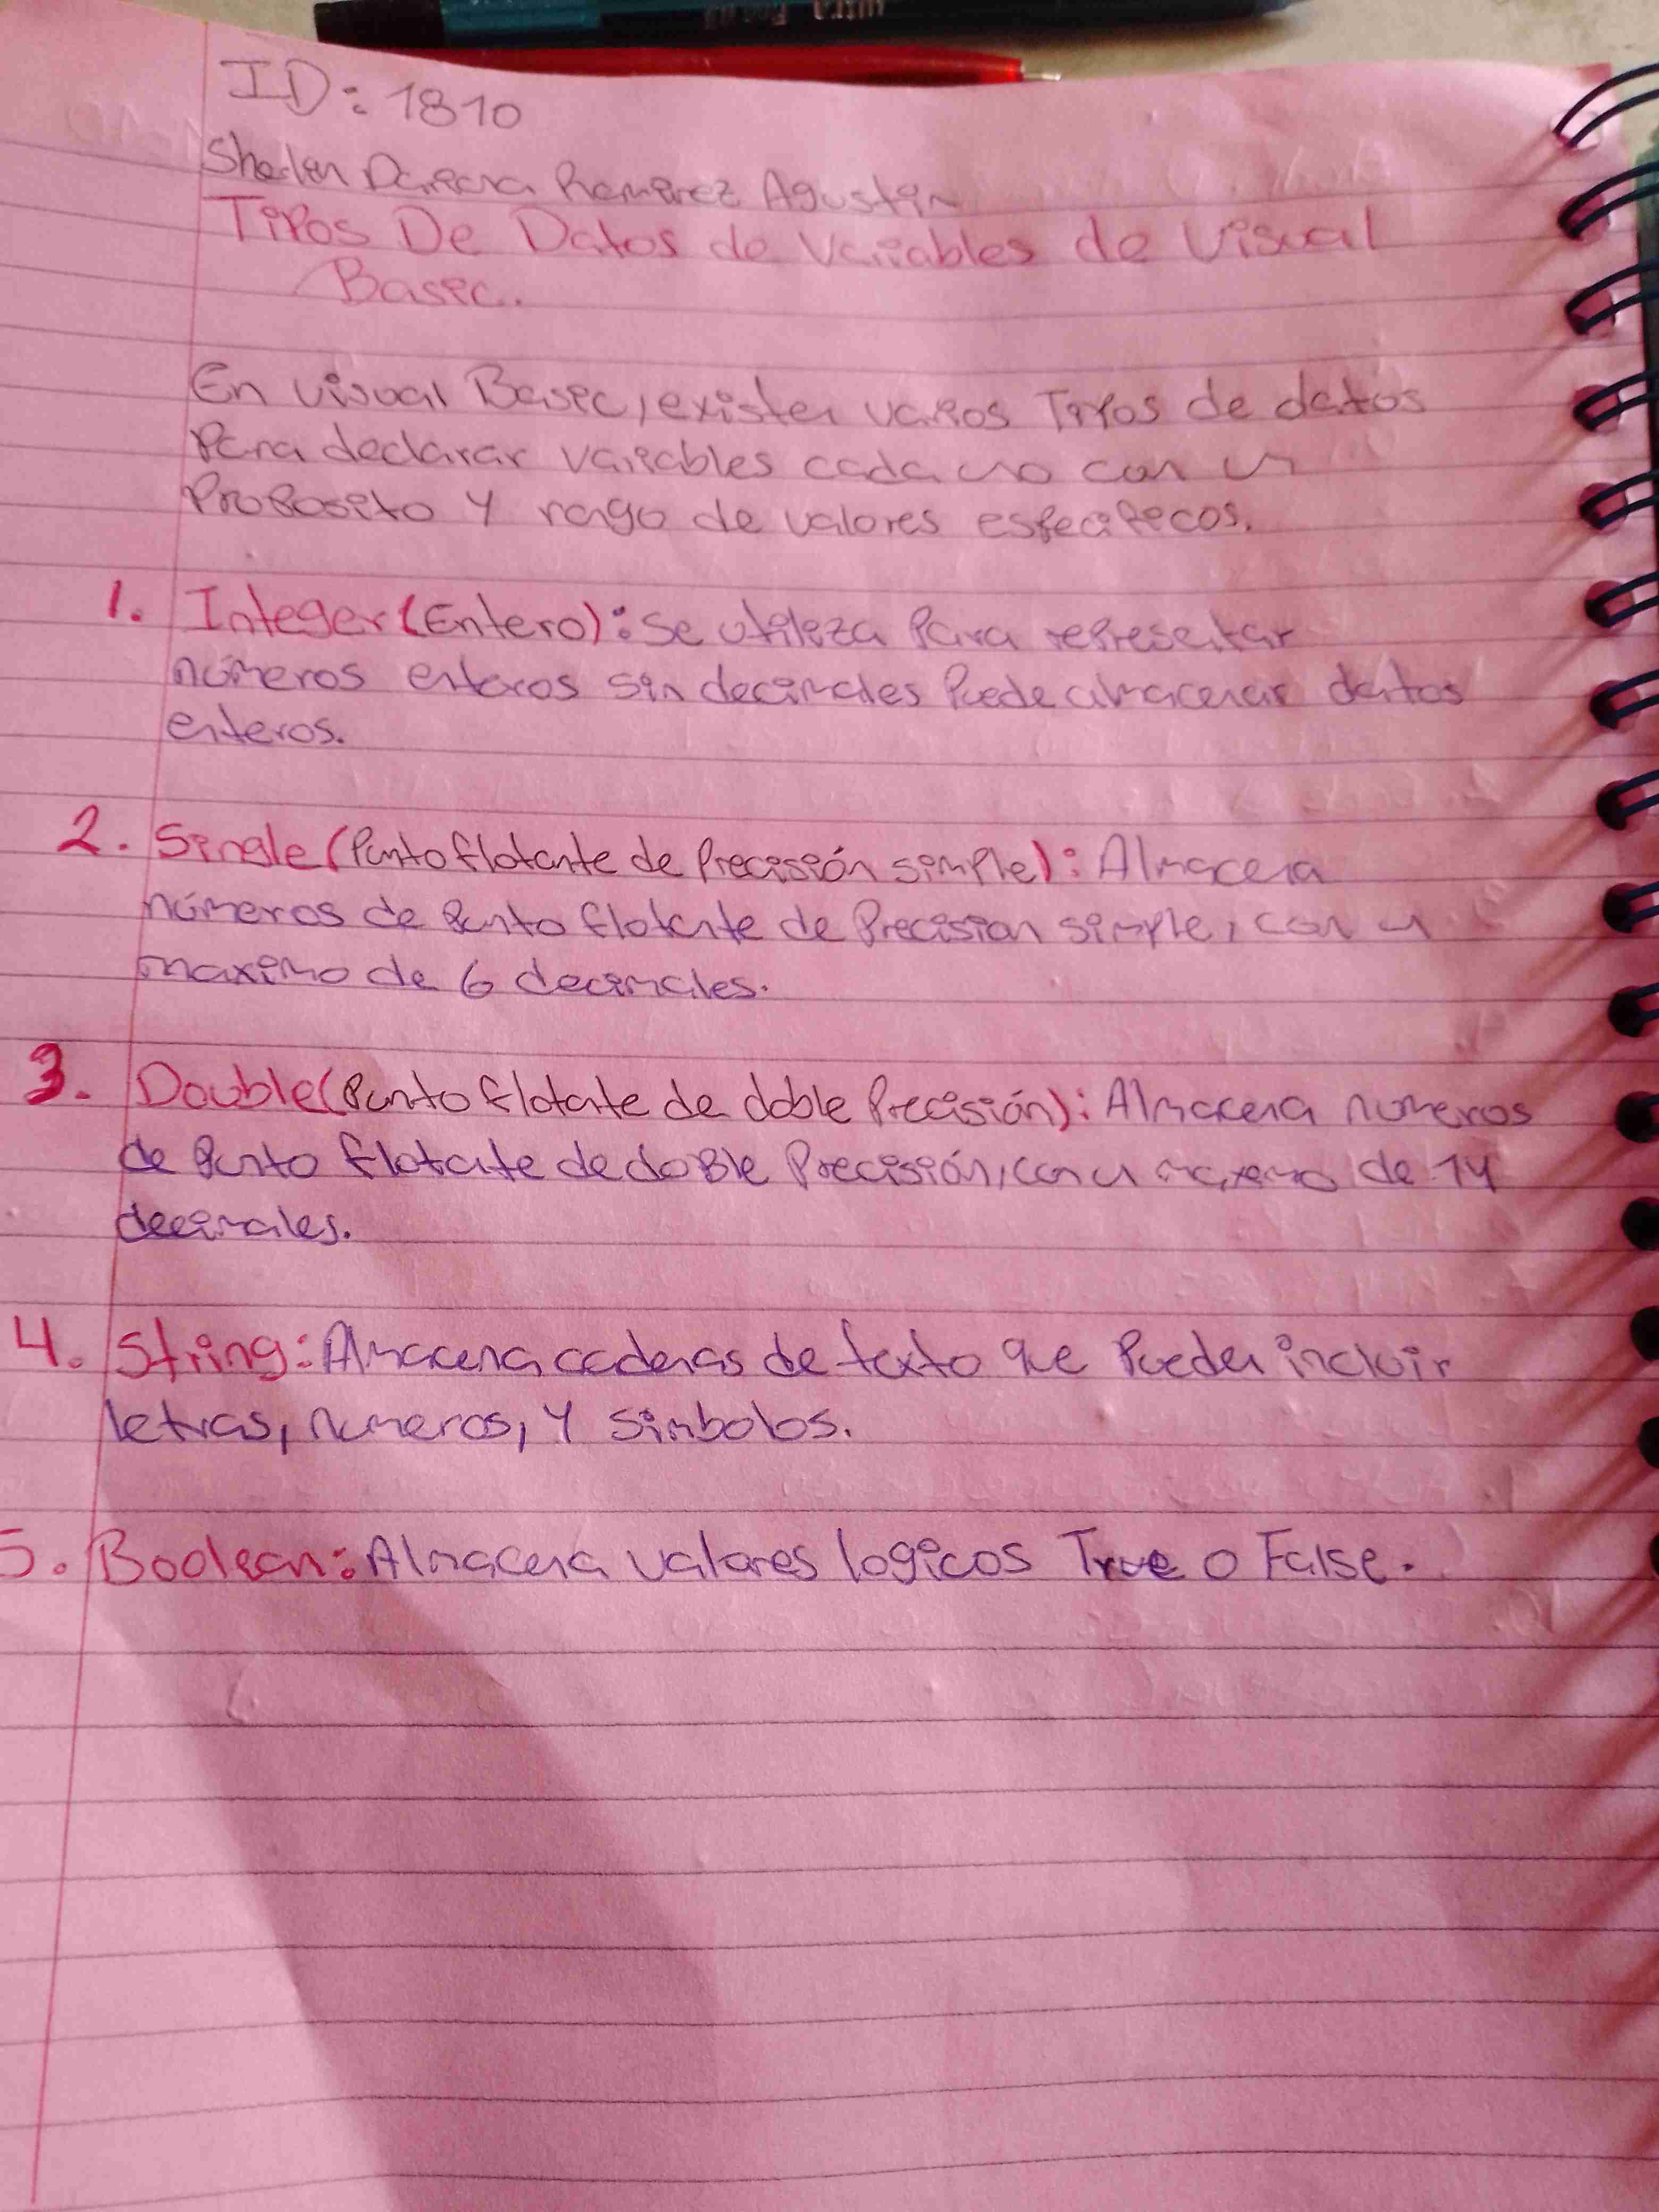 ID: 1810
Ramirez Agustin
Tipos De Datos de Variables de Visual
Basic.
En visual Basic, existen varios Tipos de datos
Para declarar variables cada uno con un
Proposito y rango de valores especificos.
1. Integer (Entero): Se utiliza Para representar
números enteros sin decimales Puede almacenar datos
enteros.
2. Single (Punto flotante de Precisión simple): Almacena
números de Punto flotante de Precision simple, con un
maximo de 6 decimales.
3. Double (Punto flotante de doble Precisión): Almacena numeros
de Punto flotante de doble Precisión, con un maximo de 14
decimales.
4. String: Almacena cadenas de texto que Pueden incluir
letras, numeros, y simbolos.
5. Boolean: Almacena valores logicos True o False.